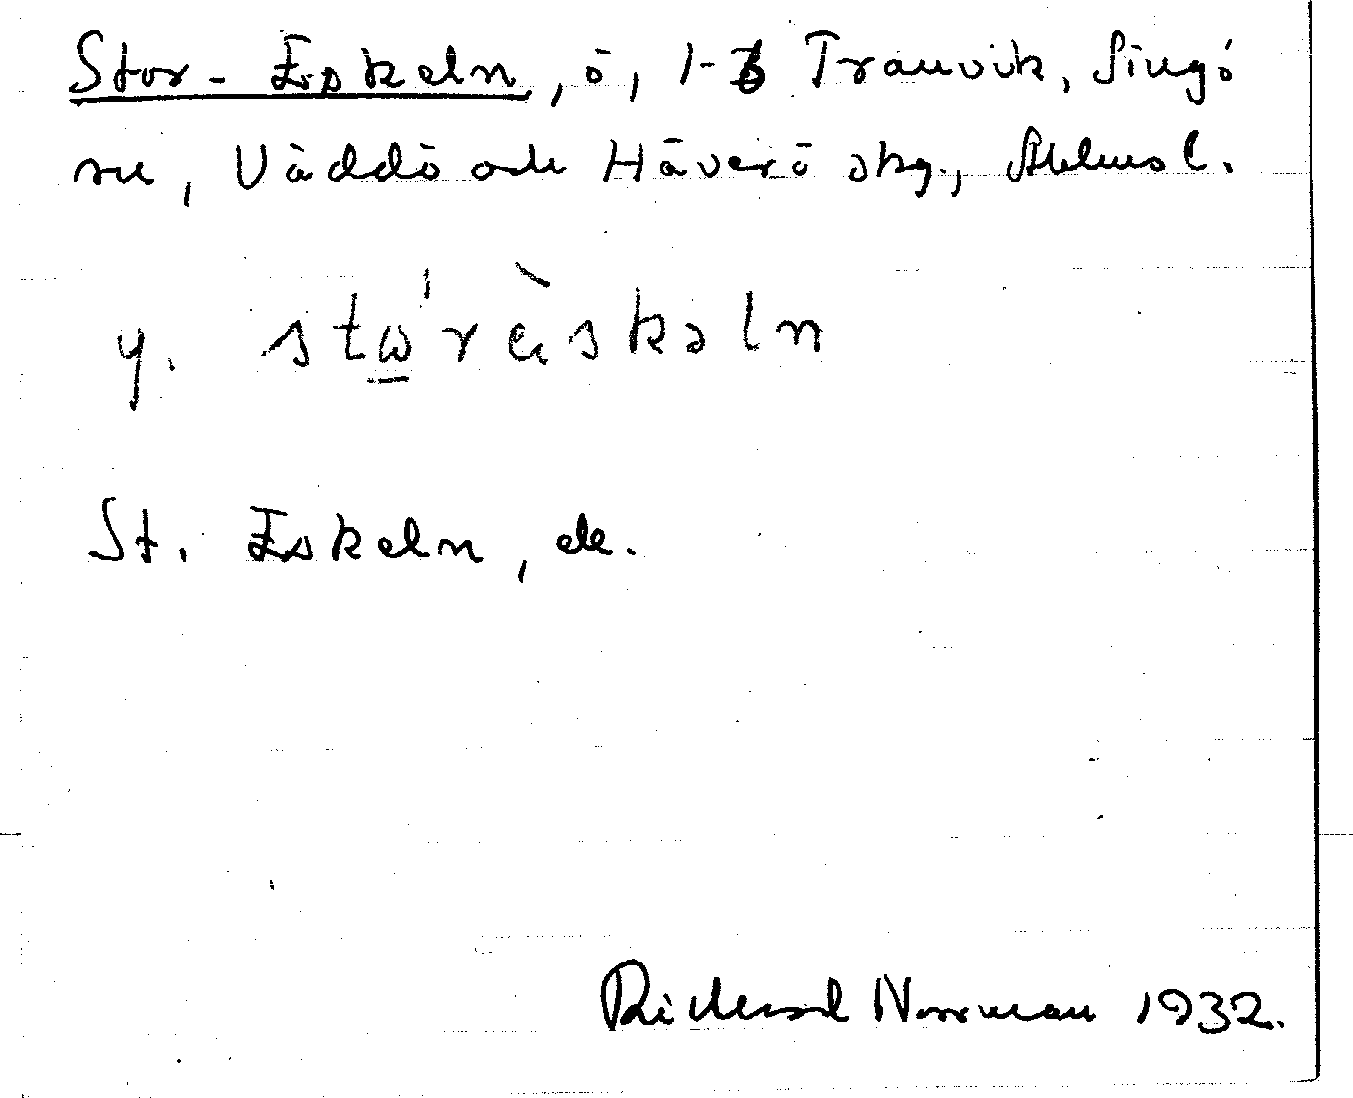 Stor-Eskeln, ö, 1-3 Tranvik, Singö
sn, Väddö och Häverö skg., Sthlms l.
y. stώ̲rὲskəln
St. Eskeln, ek.
Rickard Norrman 1932.